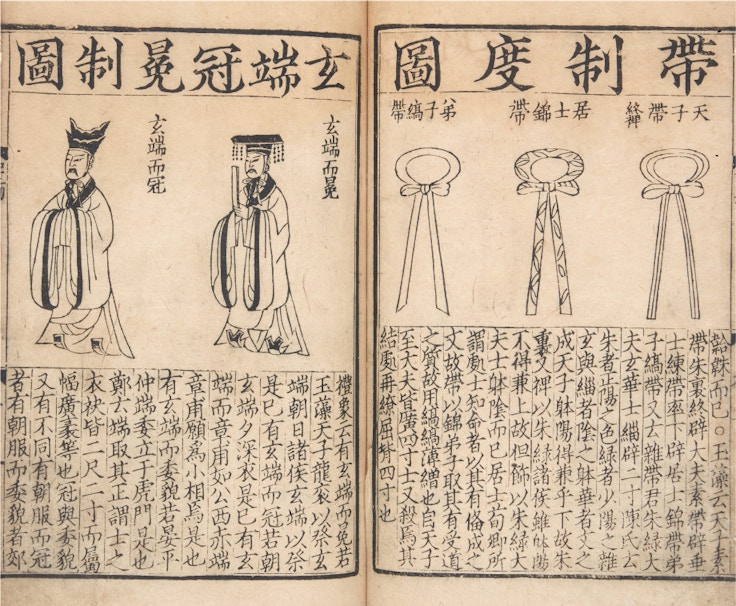 帶制度圖
天子帶終裨
居士錦帶
弟子縞帶
韐韎而已○玉藻云天子素
帶朱裏終辟大夫素帶辟垂
士練帶率下辟居士錦帶弟
子縞帶又云雜帶君朱綠大
夫玄華士緇辟二寸陳氏云
朱者正陽之色綠者少陽之雜
玄與緇者陰之躰華者文之
成天子躰陽得兼乎下故朱
裏又裨以朱綠諸侯雖躰陽
不得兼上故但飾以朱綠大
夫士躰陰而已居士荀卿所
謂處士知命者以其有俻成之
文故帶以錦弟子取其有受道
之質故用縞縞薄繒也自天子
至大夫皆廣四寸士又殺焉其
結處再繚屈紳四寸也
玄端冠冕制圖
玄端而冕
玄端而冠
禮象云有玄端而冕若
玉藻天子龍衮以祭玄
端朝日諸侯玄端以祭
是已有玄端而冠若朝
玄端夕深衣是已有玄
端而章甫如公西赤端
章甫願為小相焉是也
有玄端而委貌若晏平
仲端委立于虎門是也
鄭云端取其正謂士之
衣袂皆二尺二寸而屬
幅廣袤等也冠與委貌
又有不同有朝服而冠
者有朝服而委貌者郊